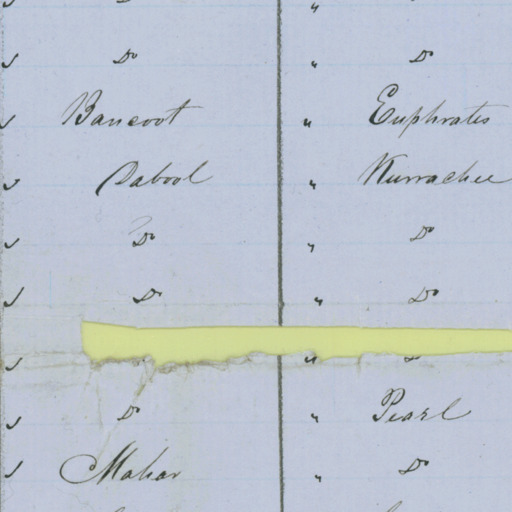 Do " Do
Bancoot " Euphrates
Dabool " Kurrachee
Do " Do
Do " Do
Do " Pearl
Mahar " Do